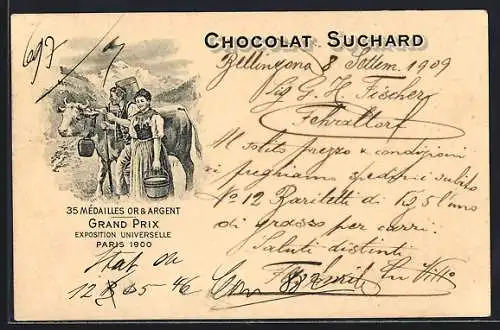 697
CHOCOLAT SUCHARD
Bellinzona 8 Settem. 1909
Sig G. H. Fischer
Fehraltorf
Al solito prezzo e condizioni
vi preghiamo spedirci subito
No 12 Bariletti di
di grosso per carri.
Saluti distinti
35 MÉDAILLES OR & ARGENT
GRAND PRIX
EXPOSITION UNIVERSELLE
PARIS 1900